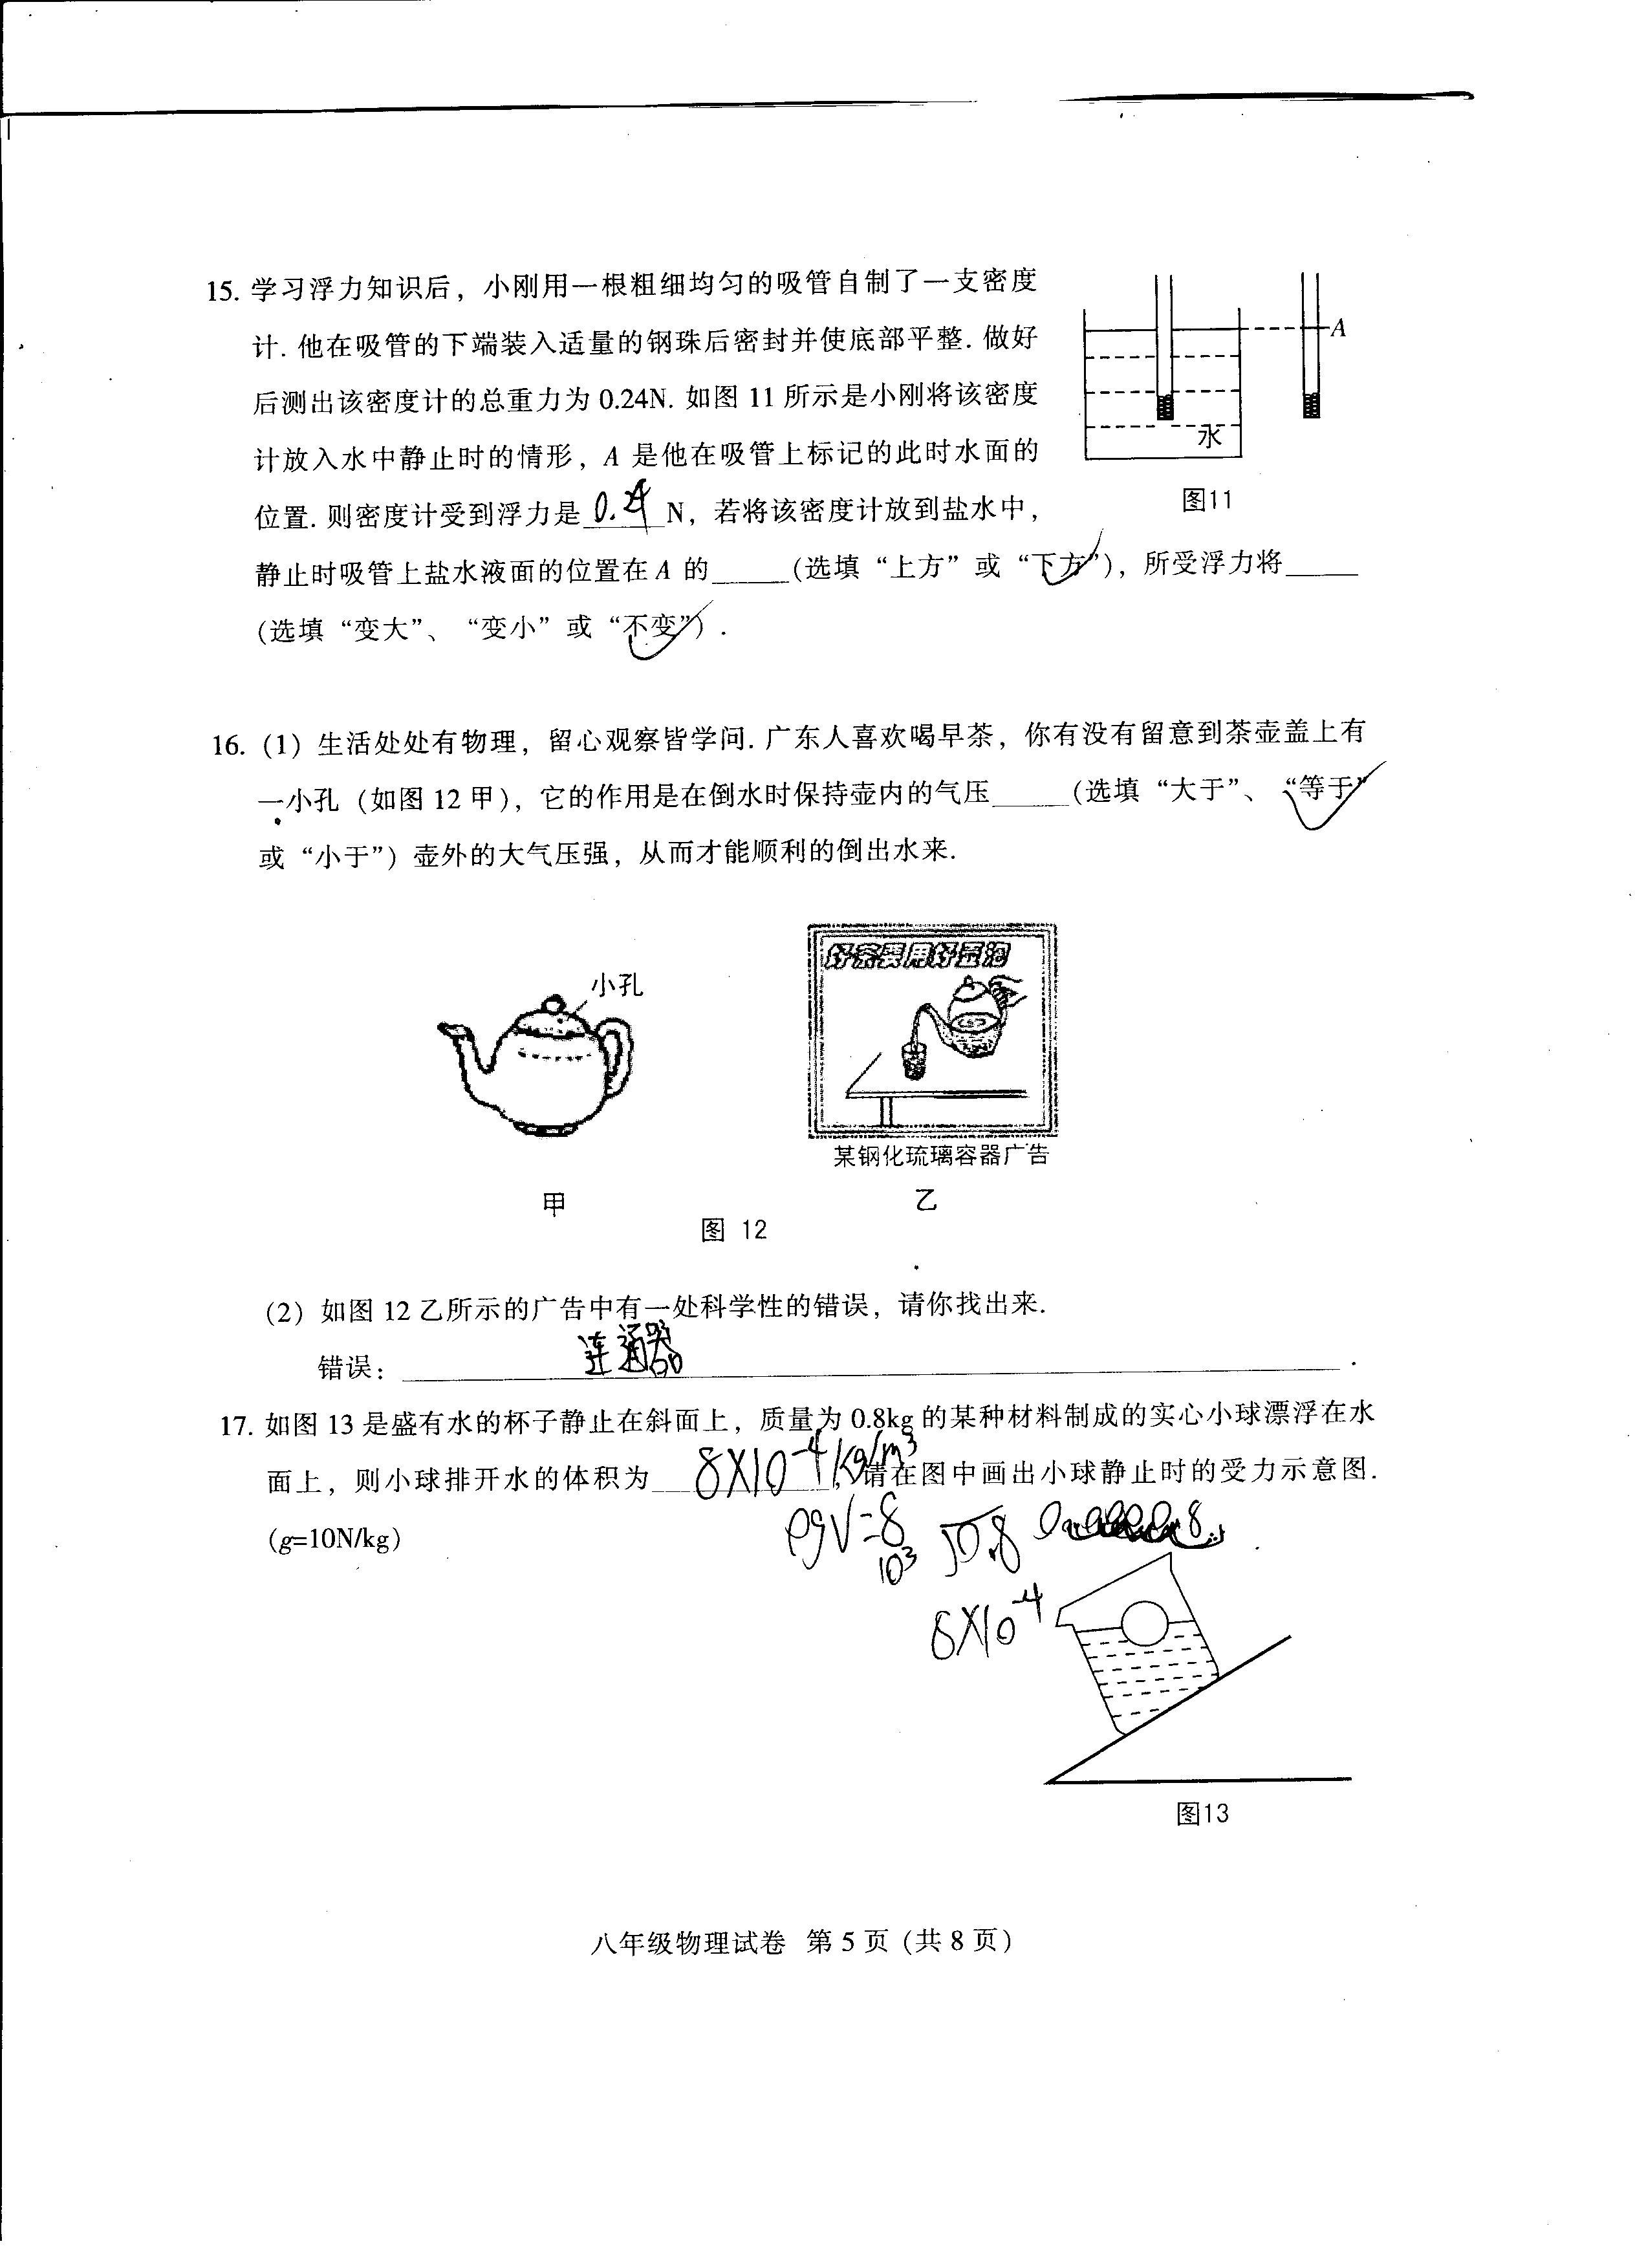 15. 学习浮力知识后，小刚用一根粗细均匀的吸管自制了一支密度
计. 他在吸管的下端装入适量的钢珠后密封并使底部平整. 做好
后测出该密度计的总重力为 0.24N. 如图 11 所示是小刚将该密度
计放入水中静止时的情形，A 是他在吸管上标记的此时水面的
位置. 则密度计受到浮力是 N，若将该密度计放到盐水中，
静止时吸管上盐水液面的位置在 A 的_____(选填“上方”或“下方”)，所受浮力将_____
(选填“变大”、“变小”或“不变”).
A
水
图11
16. (1) 生活处处有物理，留心观察皆学问. 广东人喜欢喝早茶，你有没有留意到茶壶盖上有
一小孔（如图 12 甲），它的作用是在倒水时保持壶内的气压_____(选填“大于”、“等于”
或“小于”）壶外的大气压强，从而才能顺利的倒出水来.
小孔
好茶要用好壶泡
某钢化琉璃容器广告
甲
乙
图 12
(2) 如图 12 乙所示的广告中有一处科学性的错误，请你找出来.
错误：连通器.
17. 如图 13 是盛有水的杯子静止在斜面上，质量为 0.8kg 的某种材料制成的实心小球漂浮在水
面上，则小球排开水的体积为 8×10⁻⁴ kg/m³，请在图中画出小球静止时的受力示意图.
(g=10N/kg)
ρgV=8
10³
0.8
8×10⁻⁴
图13
八年级物理试卷 第 5 页 (共 8 页)